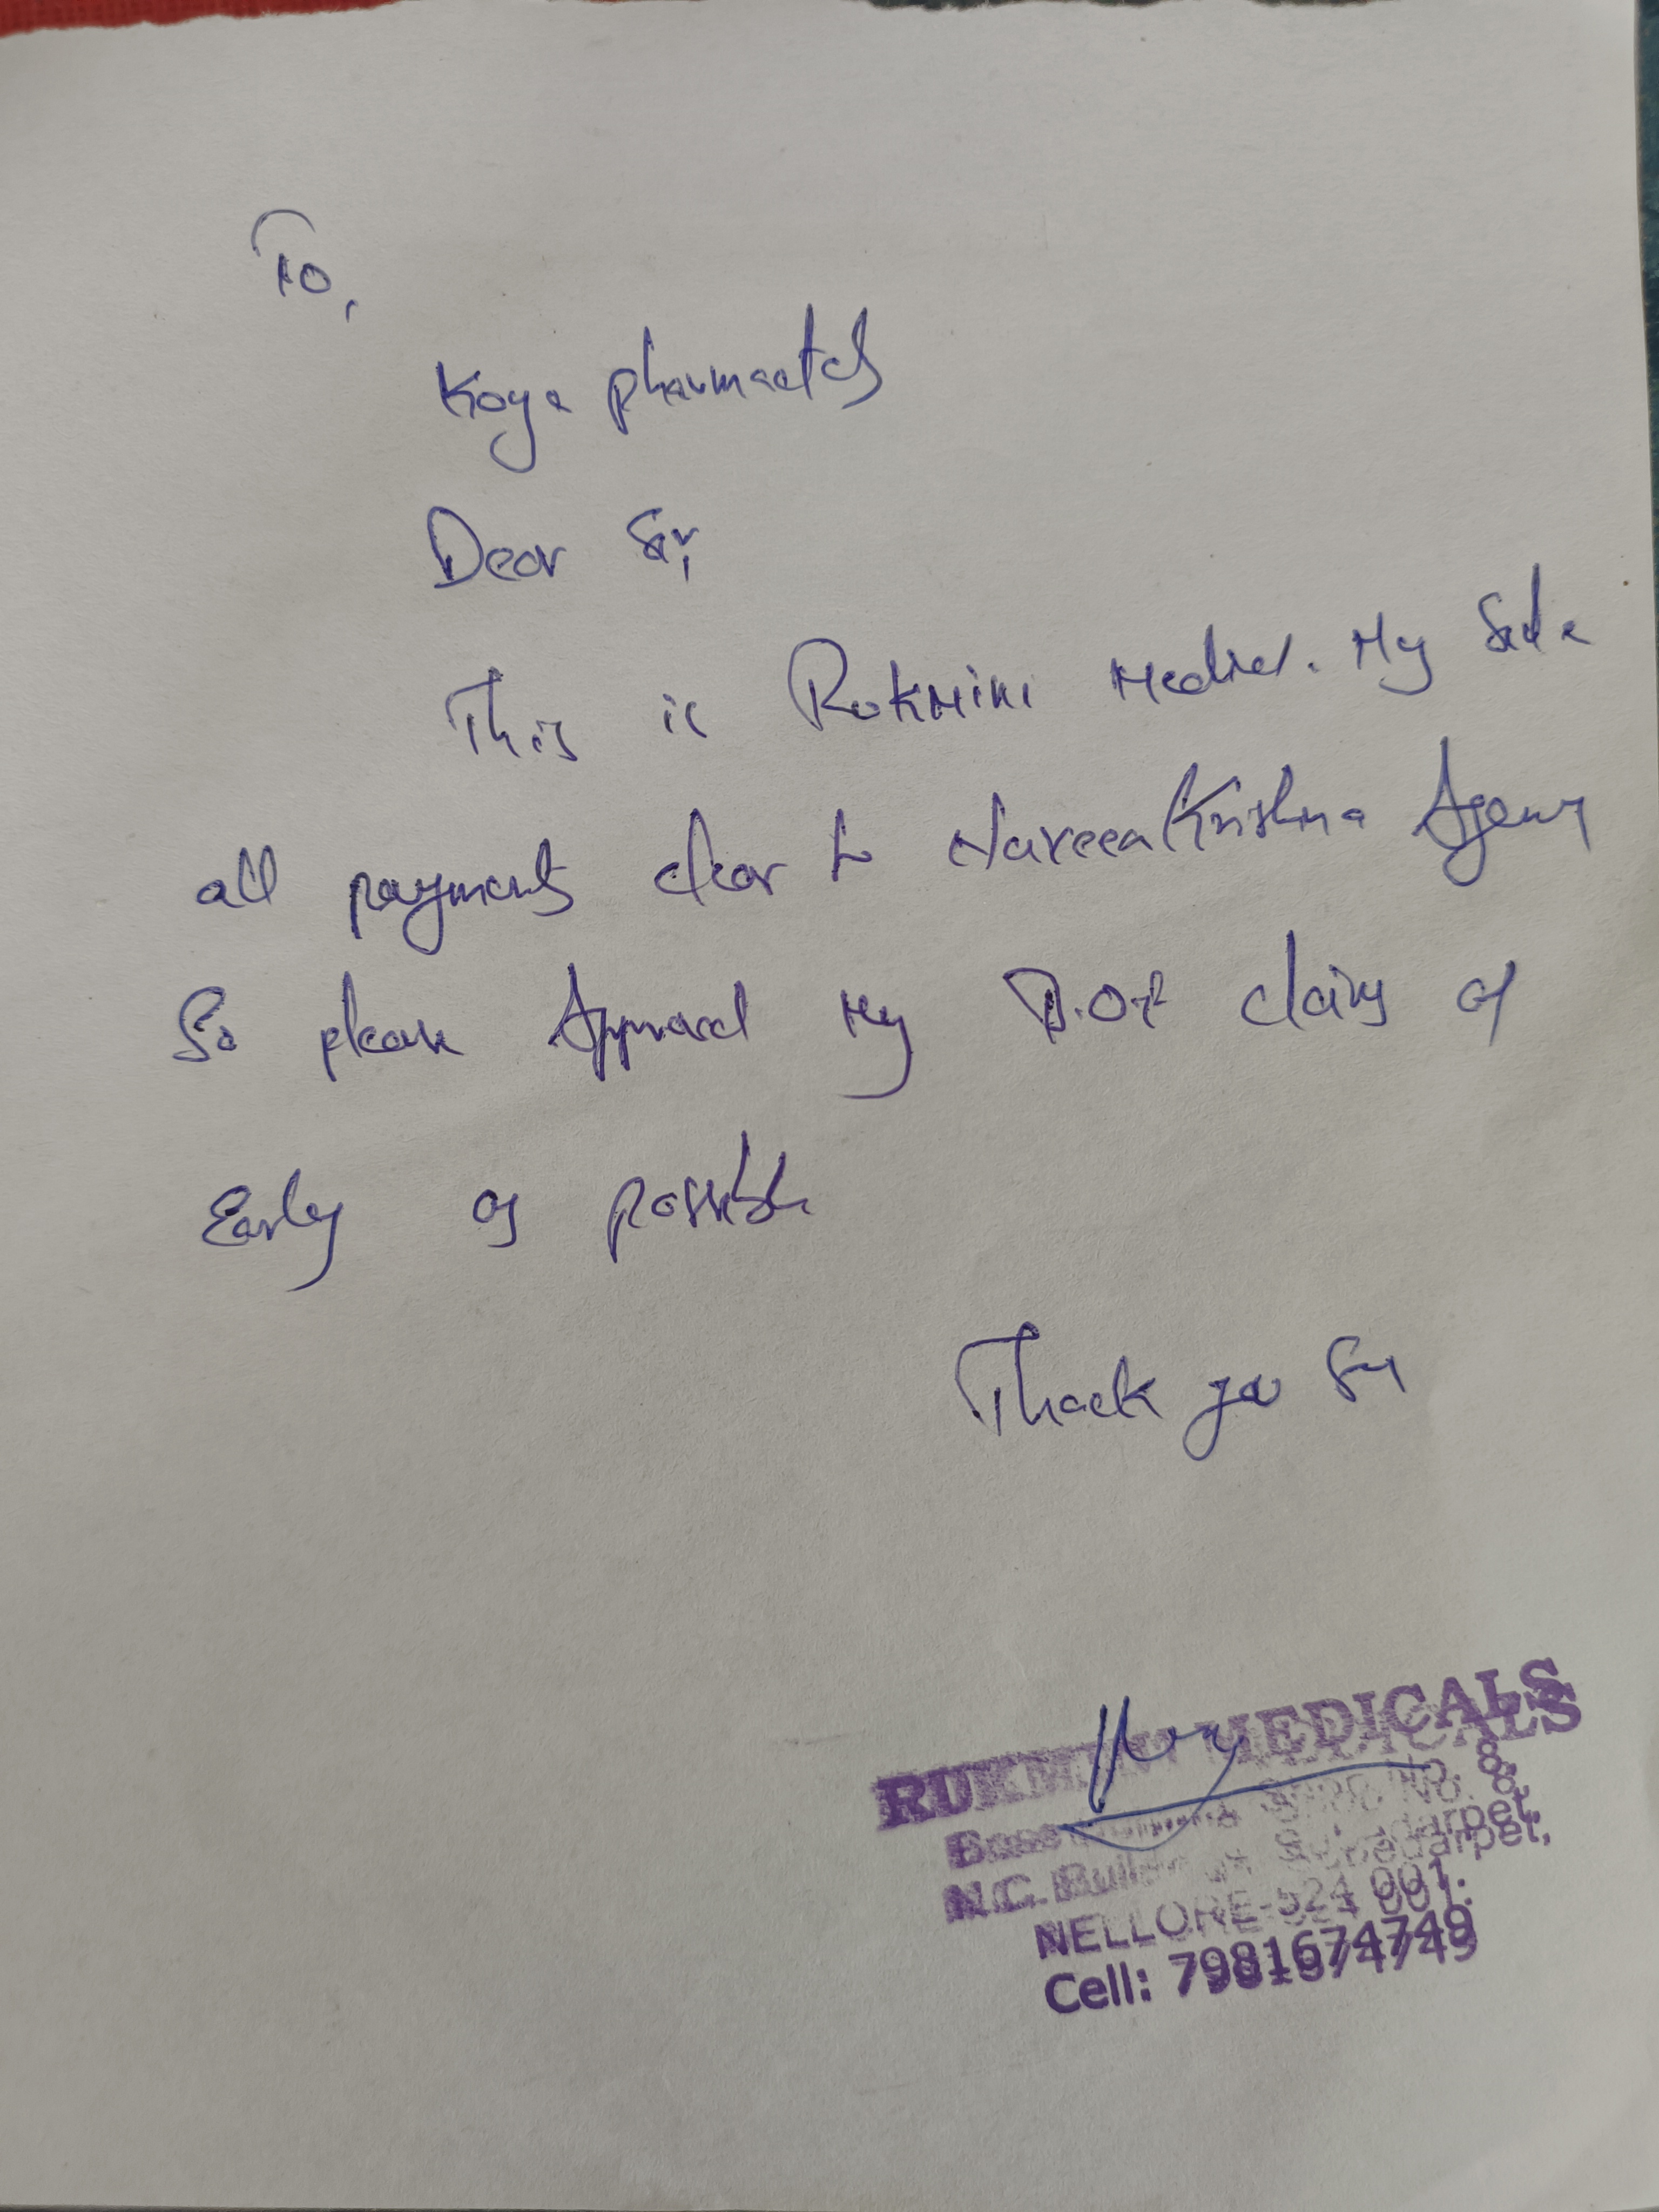 To,
Koya pharmactcls
Dear Sir,
This is Rukmini Medical. My Side
all payments clear to NaveenKrishna Agency
So please Approved My claim as
Early as possible
Thank you Sir
RUKMINI MEDICALS
Shop No. 8,
N.C. Buildings, Subedarpet,
NELLORE-524 001.
Cell: 7981674749